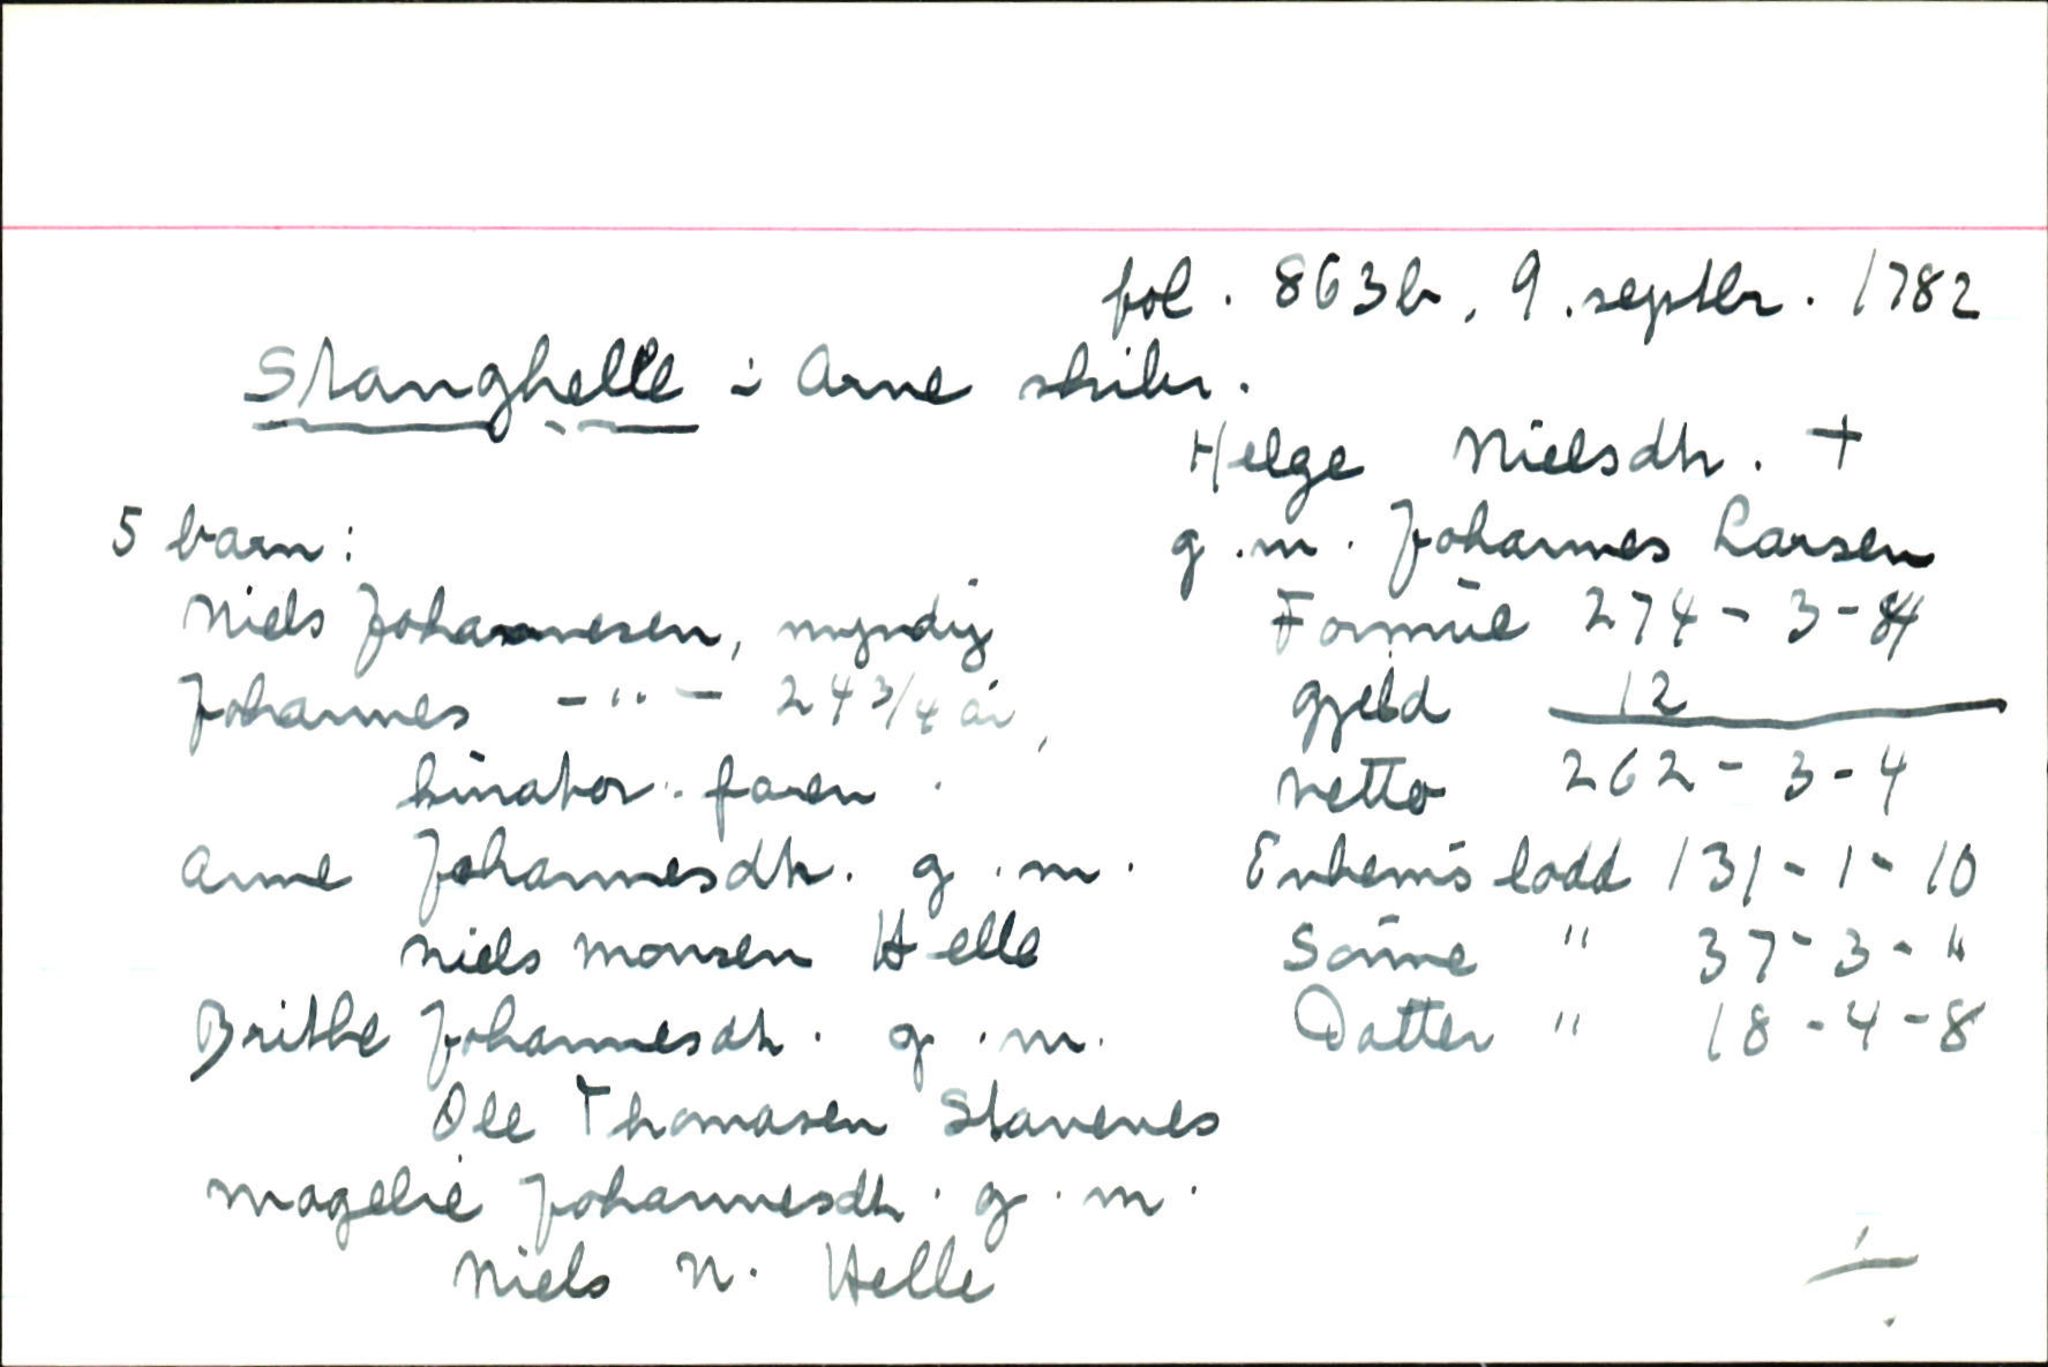 fol. 863b, 9. septbr. 1782
Stanghelle i Arne skibr.
Helge Nielsdtr. +
g.m. Johannes Larsen
Formue 274 - 3 - 4
gjeld 12
netto 262 - 3 - 4
Enkems lodd 131 - 1 - 10
Sönne " 37 - 3 - "
Datter " 18 - 4 - 8
5 barn:
Niels Johannesen, myndig
Johannes - " - 24 3/4 år,
kurator: faren.
Anne Johannesdtr. g.m.
Niels Monsen Helle
Brithe Johannesdtr. g.m.
Ole Thomasen Stavenes
Magelie Johannesdtr. g.m.
Niels N. Helle